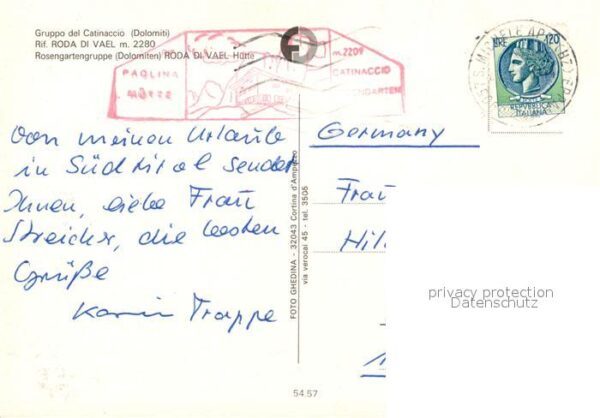 Gruppo del Catinaccio (Dolomiti)
Rif. RODA DI VAEL m. 2280
Rosengartengruppe (Dolomiten) RODA DI VAEL Hütte
PAOLINA
HÜTTE
m. 2209
CATINACCIO
LIRE 120
REPVBBLICA
ITALIANA
Von meinem Urlaub
in Südtirol sendet
Ihnen, liebe Frau
Streicher, die besten
Grüße
Karin Trappe
Germany
Frau
Hil
FOTO GHEDINA - 32043 Cortina d'Ampezzo
via verocai 45 - tel. 3505
54 57
privacy protection
Datenschutz